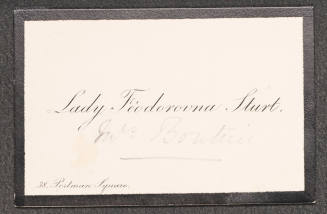 Lady Féodorovna Sturt.
Mrs
38, Portman Square.